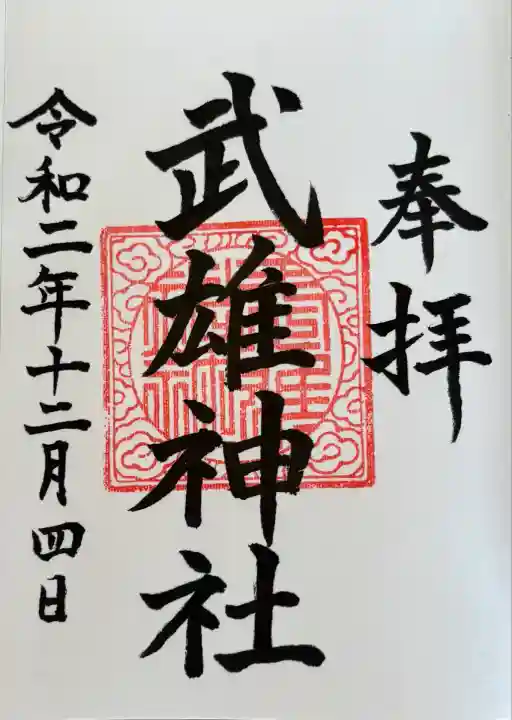 奉拝
武雄神社
令和二年十二月四日